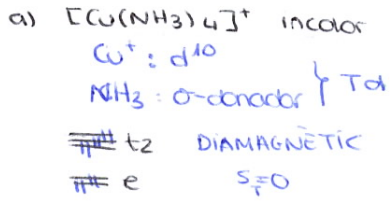 a) [Cu(NH3)4]+ incolor
Cu+ : d10
NH3 : σ-donador } Td
t2 DIAMAGNÈTIC
e ST=0